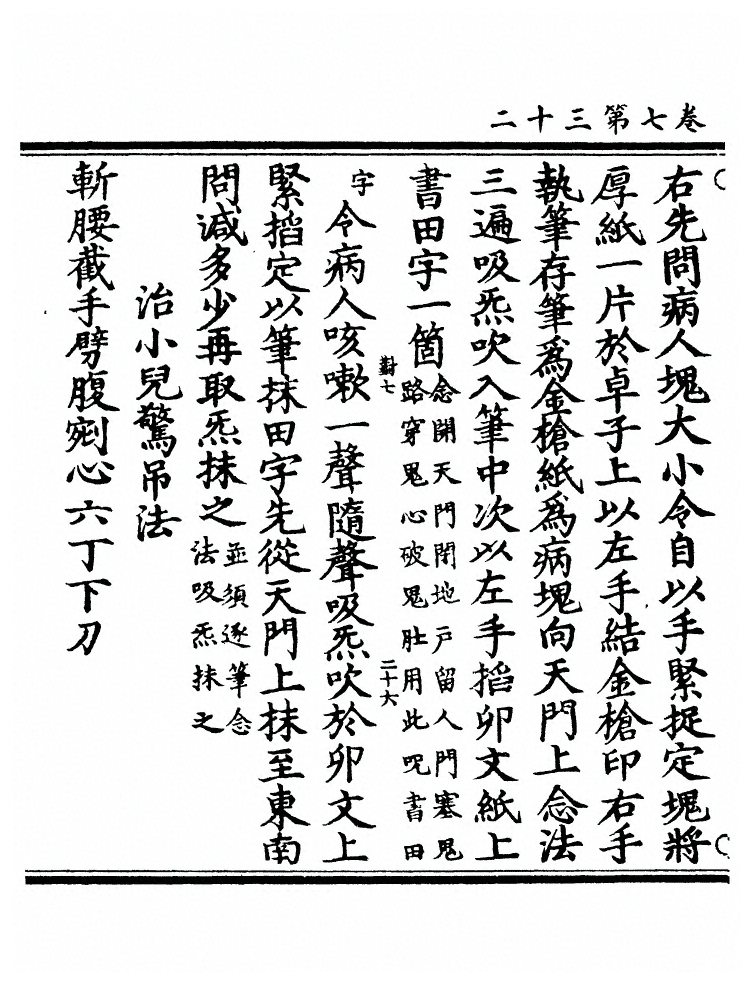 卷七第三十二
右先問病人塊大小令自以手緊捉定塊將
厚紙一片於卓子上以左手結金槍印右手
執筆存筆爲金槍紙爲病塊向天門上念法
三遍吸炁吹入筆中次以左手搯卯文紙上
書田字一箇
念開天門閉地戶留人門塞鬼
路穿鬼心破鬼肚用此呪書田
字
令病人咳嗽一聲隨聲吸炁吹於卯文上
對七
二十六
緊搯定以筆抹田字先從天門上抹至東南
問减多少再取炁抹之
並須逐筆念
法吸炁抹之
治小兒驚吊法
斬腰截手劈腹剜心六丁下刀